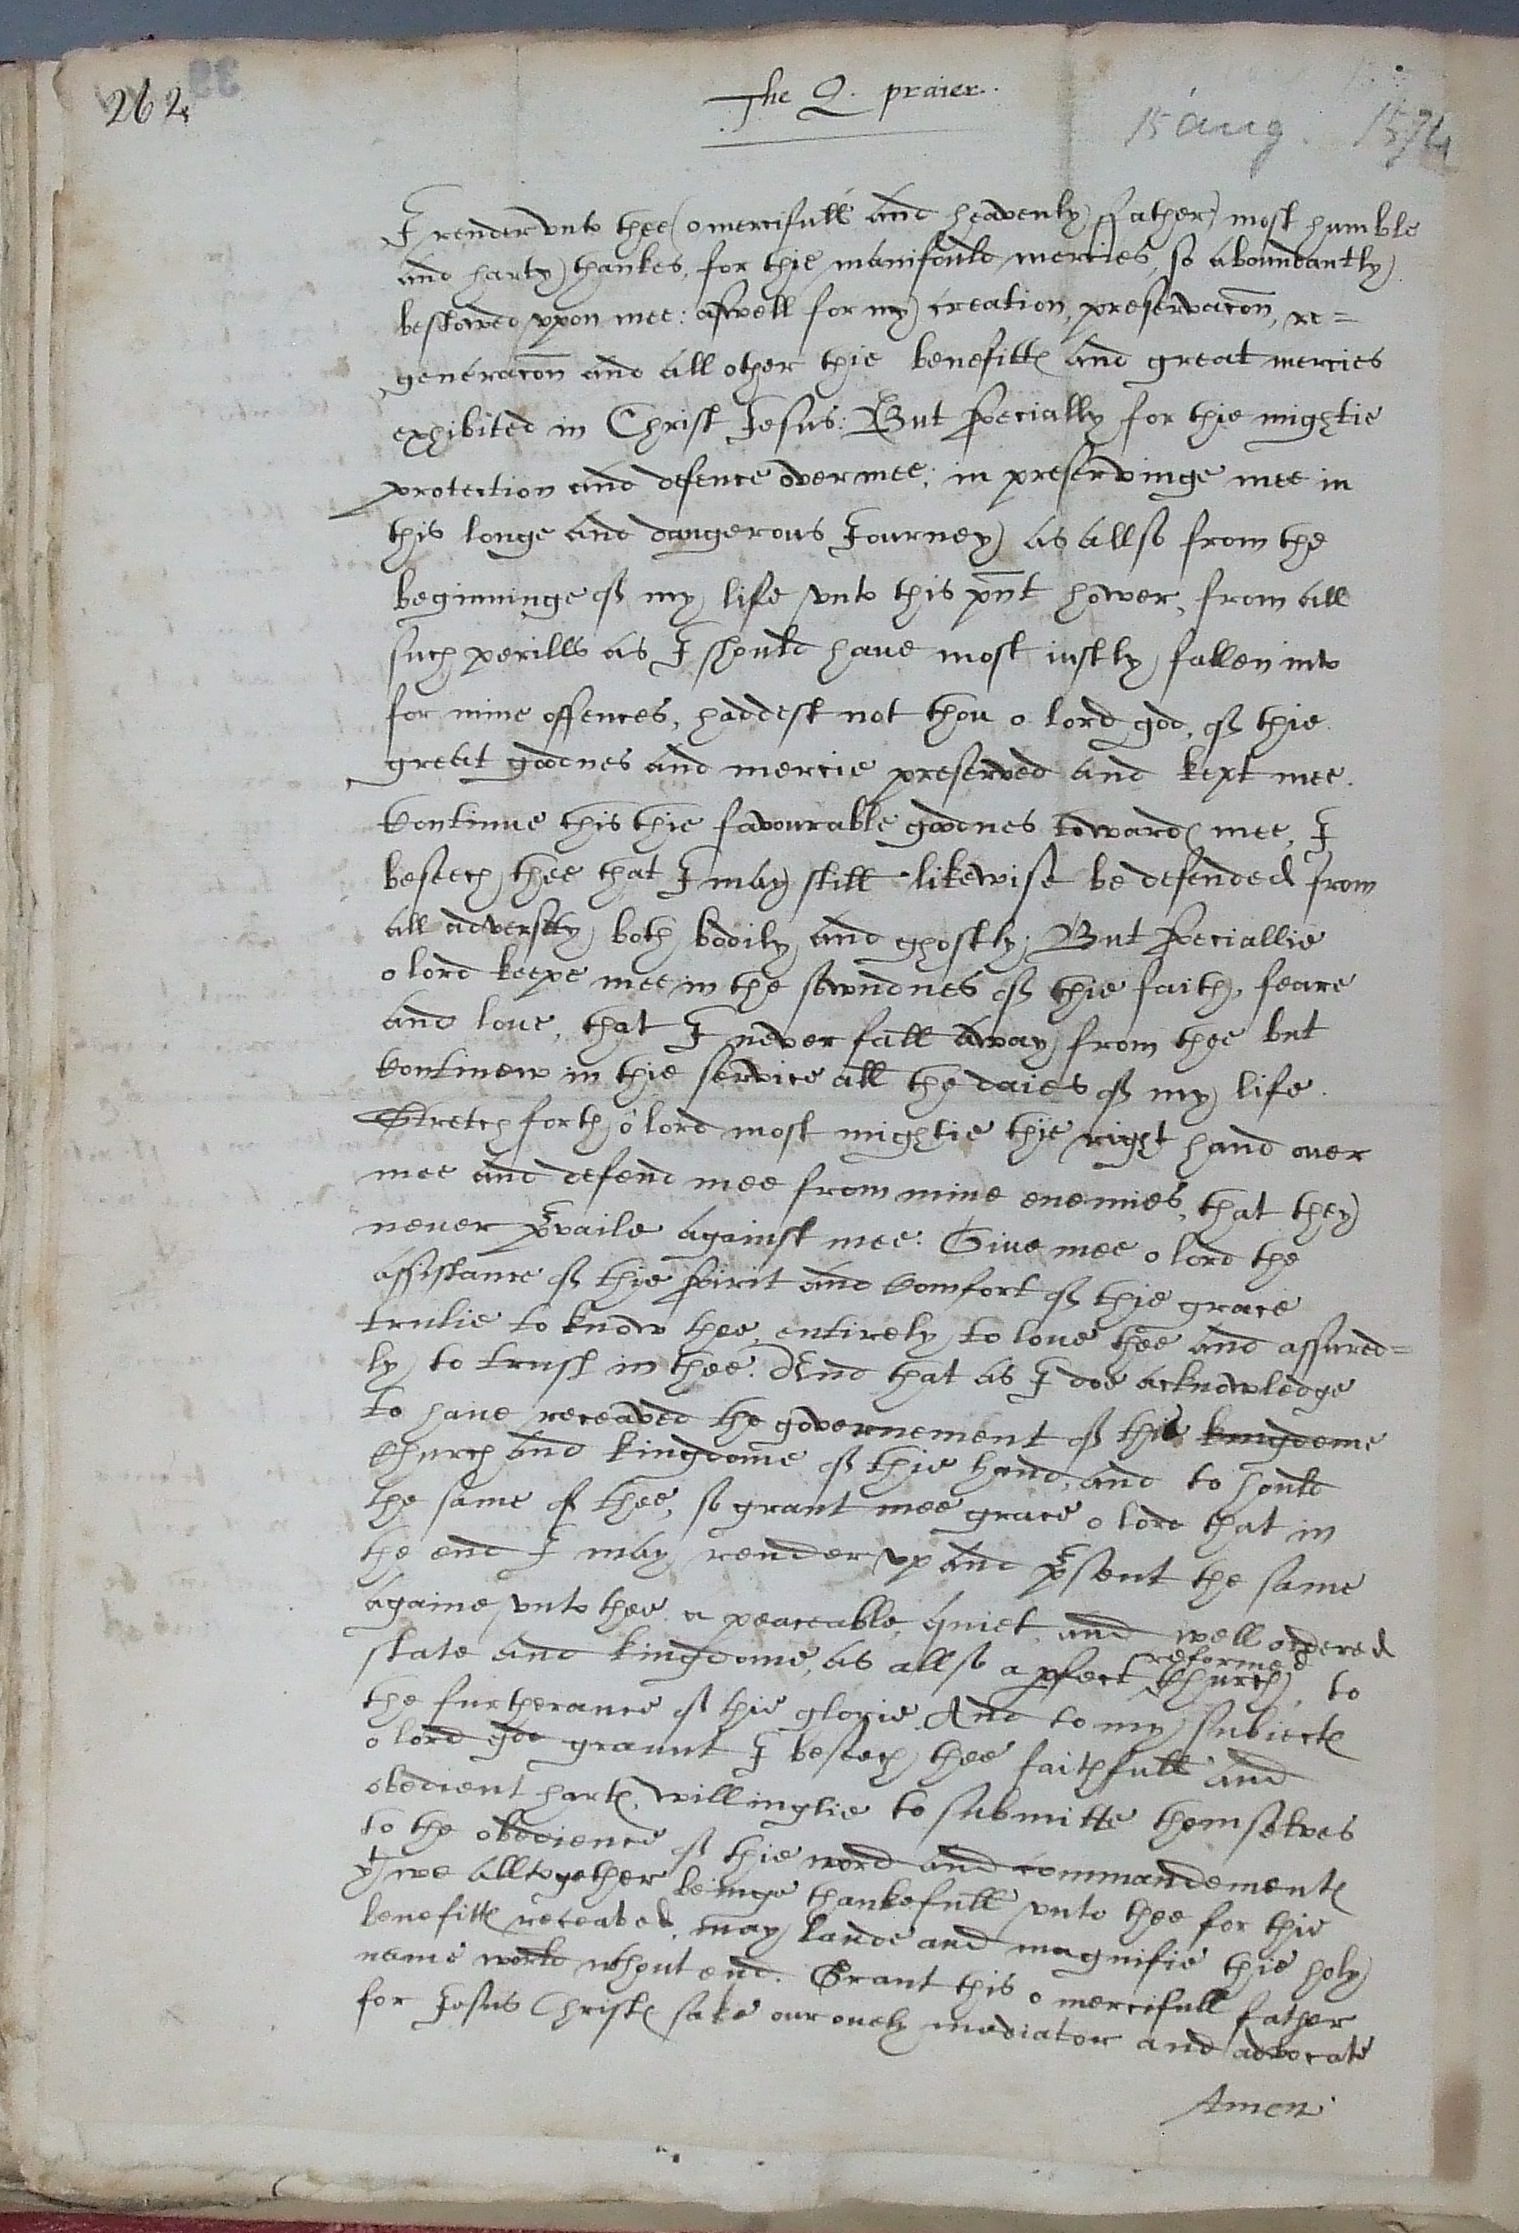 262
39
The Q. praier.
15 Aug. 1574
I render vnto thee (o mercifull and heavenly ffather) most humble
and harty thankes, for thie manifould mercies, so aboundantly
bestowed vppon mee: aswell for my creation, preservacōn, re=
generacōn and all other thie benefittes and great mercies
exhibited in Christ Jesus: But specially for thie mightie
protection and defence over mee, in preservinge mee in
this longe and dangerous Journey, as allso from the
beginninge of my life vnto this pn̄t hower, from all
such perills as I should haue most iustly fallen into
for mine offences, haddest not thou o lord god, of thie
great goodnes and mercie preserved and kept mee.
Continue this thie favourable goodnes towardes mee, I
beseech thee that I may still likewise be defended from
all adversity both bodily and ghostly: But speciallie
o lord keepe mee in the sowndnes of thie faith, feare
and loue, that I never fall away from thee but
Continew in thie service all the daies of my life.
Stretch forth ô lord most mightie thie right hand ouer
mee and defend mee from mine enemies, that they
neuer p̱vaile against mee: Giue mee o lord the
assistance of thie spirit and Comfort of thie grace
trulie to know thee, entirely to loue thee and assured=
ly to trust in thee. And that as I doe acknowledge
to haue receaved the governement of this kingdome
Church and kingdome of thie hand, and to hould
the same of thee, so grant mee grace o lord that in
the end I may render vp and p̱sent the same
againe vnto thee a peaceable, quiet, and well ordered
state and kingdome, as allso a pfect reformed Church, to
the furtherance of thie glorie. And to my subiectes
o lord god graunt I beseech thee faithfull and
obedient hartes, willinglie to submitte themselves
to the obedience of thie word and commandementes
yt we alltogether beinge thankefull vnto thee for thie
benefittes receaved, may laude and magnifie thie holy
name world wthout end. Grant this o mercifull father
for Jesus Christes sake our onely mediator and advocate
Amen